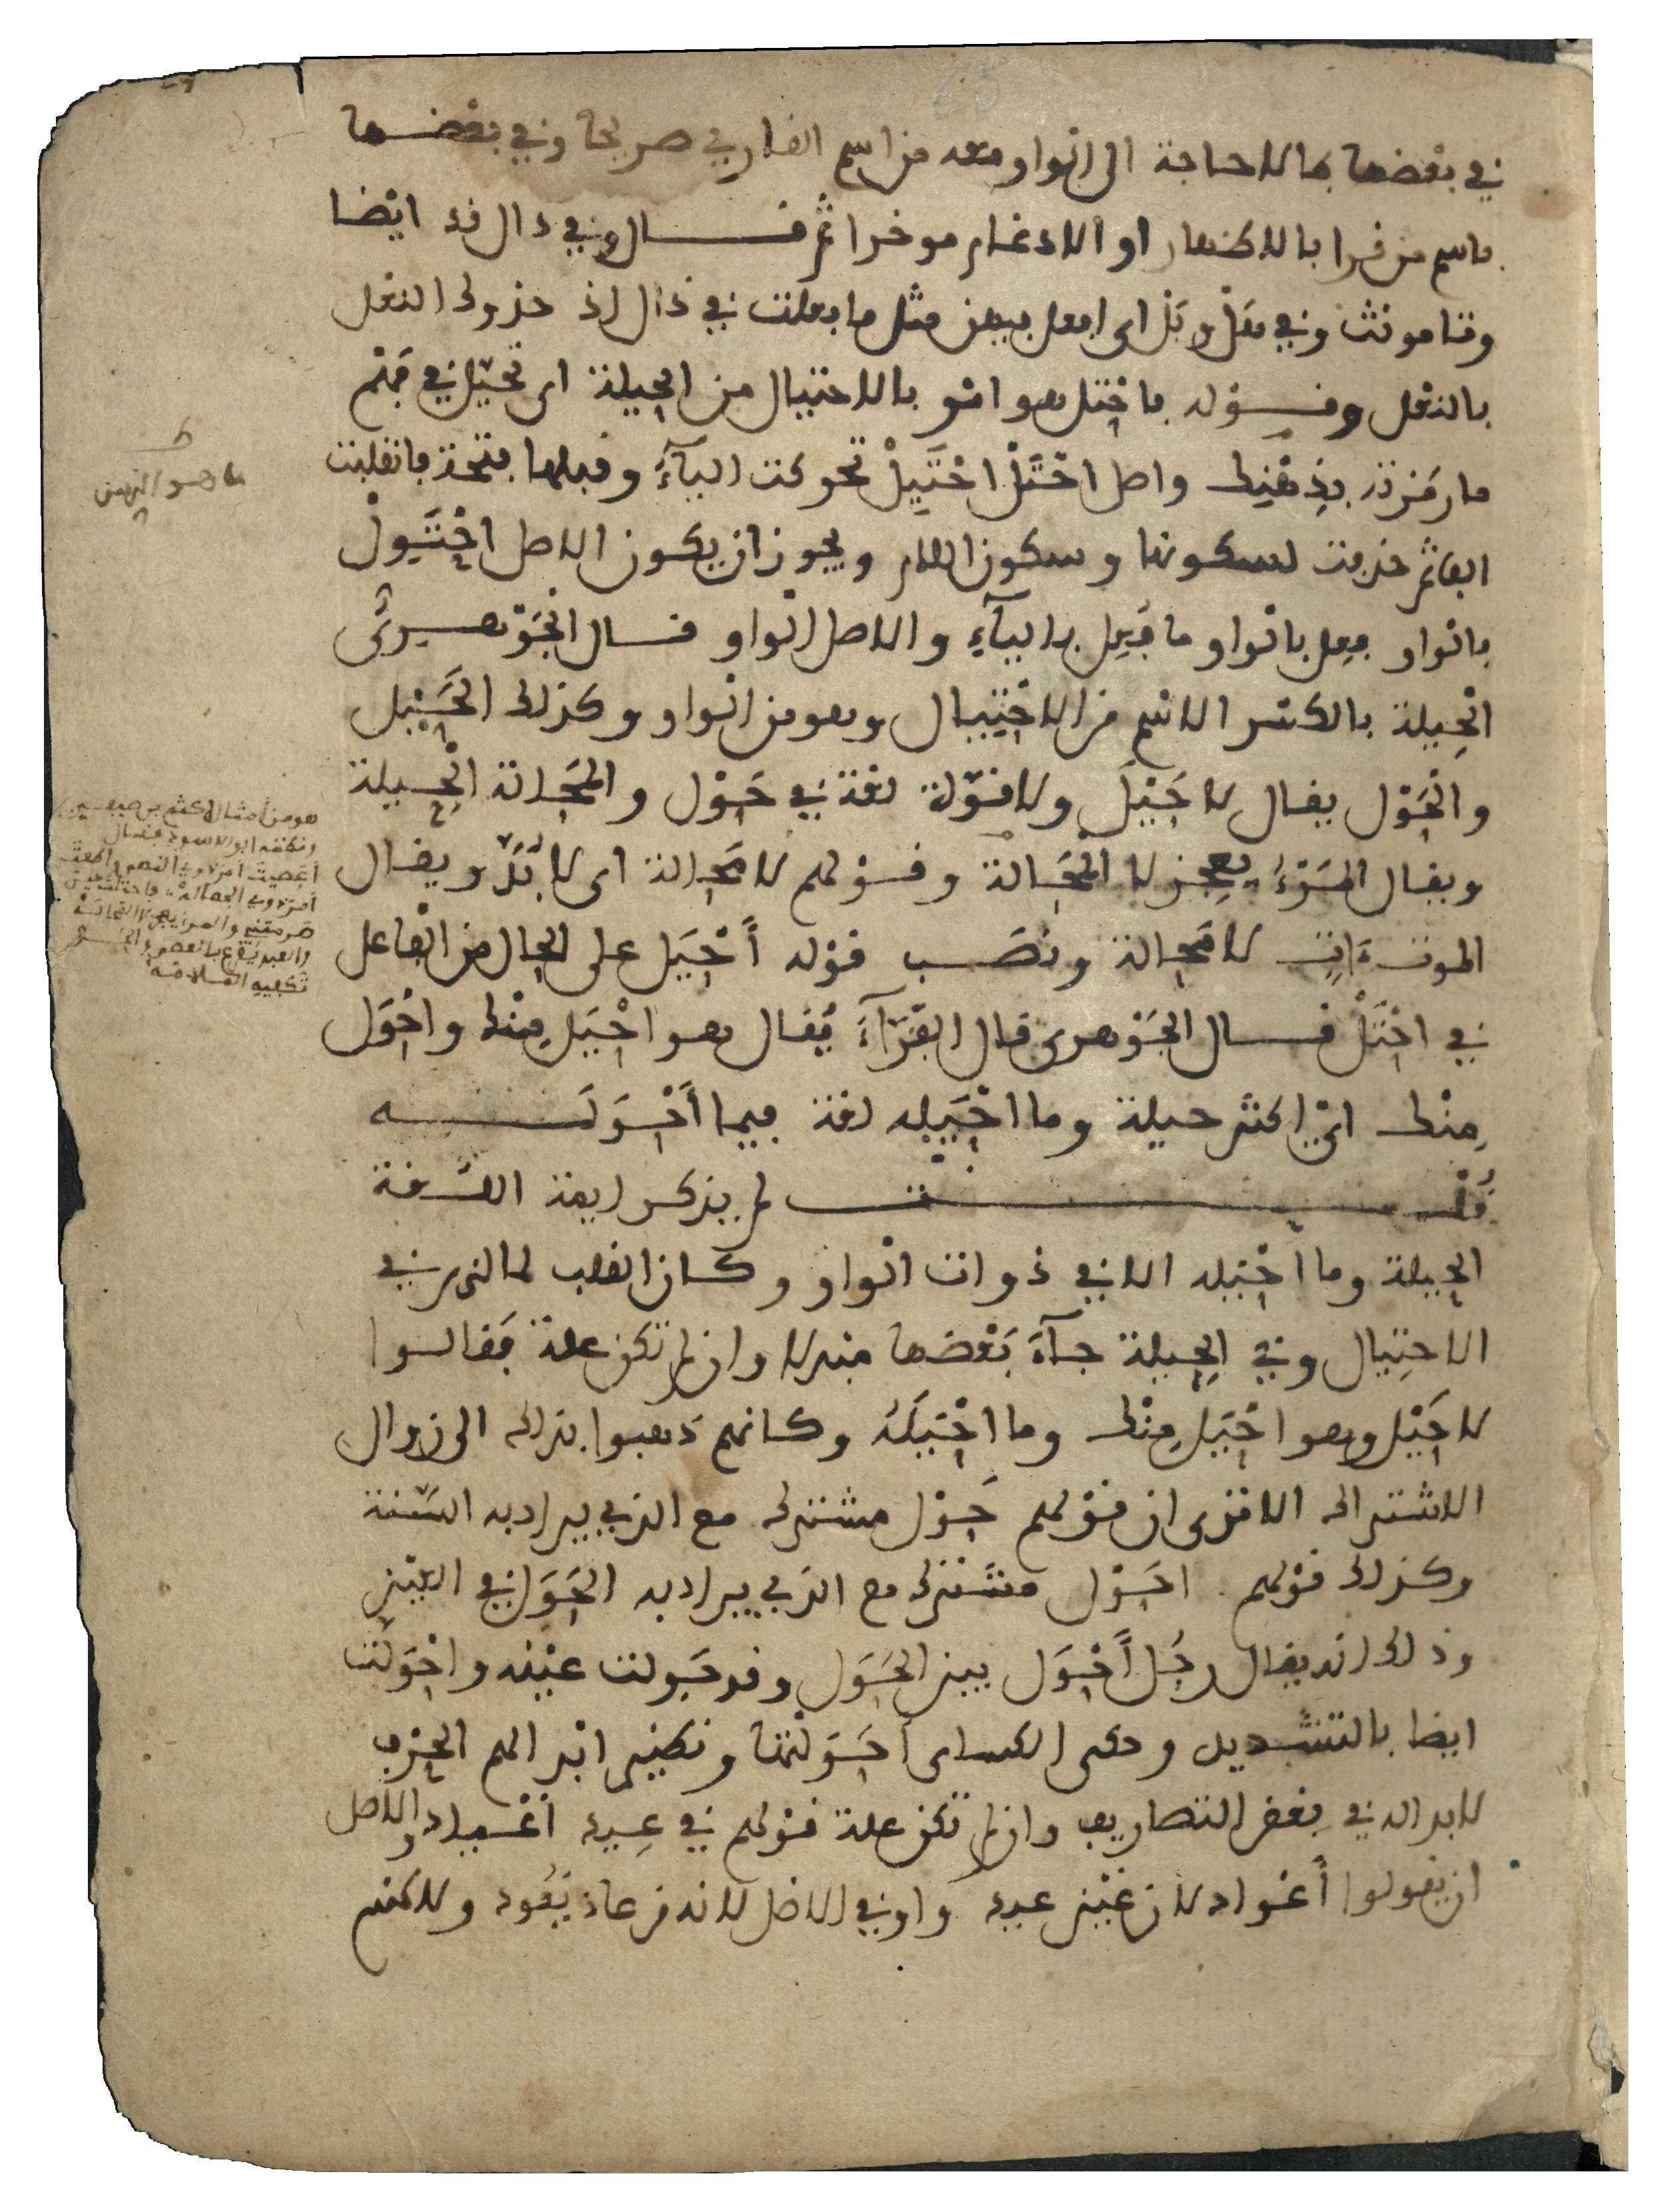 في بعضها بما لا حاجة الى الواو معه من اسم القارئ صريحا وفي بعضها
باسم من قرا بالاظهار او الادغام موخرا ثم قال وفي دال قد ايضا
وتا مونث وفي هل وبل اى افعل فيهن مثل ما فعلت في ذال اذ حذوك النعل
بالنعل وقوله فاحْتل هو امر بالاحتيال من الحيلة اى تحيّل في فَهْم
ما رمزته بذهْنِك واصل احْتَلْ احْتَيِلْ تحركت اليآءُ وقبلها فتحة فانقلبت
الفا ثم حذفت لسكونها وسكون اللام ويجوز ان يكون الاصل احْتَوِلْ
بالواو ففعل بالواو ما فُعِل باليآءِ والاصل الواو قال الجَوْهرىّ
الحِيلة بالكسر الاسم من الاحْتِيال وهو من الواو وكذلك الحَيْل
والحَوْل يقال لا حَيْلَ ولا قوّة لغة في حَوْل والمَحَالة الحِيلة
ويقال المَرْءُ يعجز لا المَحَالة وقولهم لا مَحالة اى لا بُدّ ويقال
الموت ءَاتٍ لا مَحالة ونصَب قوله أَحْيَل على الحال من الفاعل
في احْتَلْ قال الجَوْهرى قال الفرّآءُ يُقال هو احْيَل مِنْك واحْوَل
مِنْك اىْ اكثر حيلة وما احْيَله لغة فيما أَحْوَلَه
قُلْت لم يذكر ايمة اللغة
الحيلة وما احْيله الا في ذوات الواو وكان القلب
الاحتِيال وفي الحِيلة جآءَ بَعْضها مبدلا وان لم تكن علة فَقالوا
لا حَيْل وهو احْيَل مِنْك وما احْيَلَهُ وكانهم ذهبوا بذلك الى زوال
الاشتراك الا ترى ان قولهم حَوْل مشترك مع الذي يراد به السّنة
وكذلك قولهم احَوْل مشترك مع الذي يراد به الحَوَل في العَيْن
وذلك انه يقال رجُل أَحْوَل بين الحَوَل وقد حَوِلت عيْنه واحْوَلّت
ايضا بالتشديد وحكى الكساى أحَوَلْتها ونظير ابدالهم الحرف
لابداله في بعض التصاريف وان لم تكن علة قولهم في عِيد أَعْياد والاصل
ان يقولوا أَعْواد لان عَيْن عيد واو في الاصل لانه من عاد يَعُود ولاكنهم
ط
ما هو التهمن
هو من أمثال أكثم بن صيفي
ونظمه ابو الاسود فقال
أعَصيتَ امرَ ذوي النهى واطعتَ
امرَ ذوي الجهالَهْ فاحتلت حين
صرمتني والمرء يعجز لا المحالَهْ
والعبد يُقرع بالعصى والحُر
تكفيه الملامَهْ